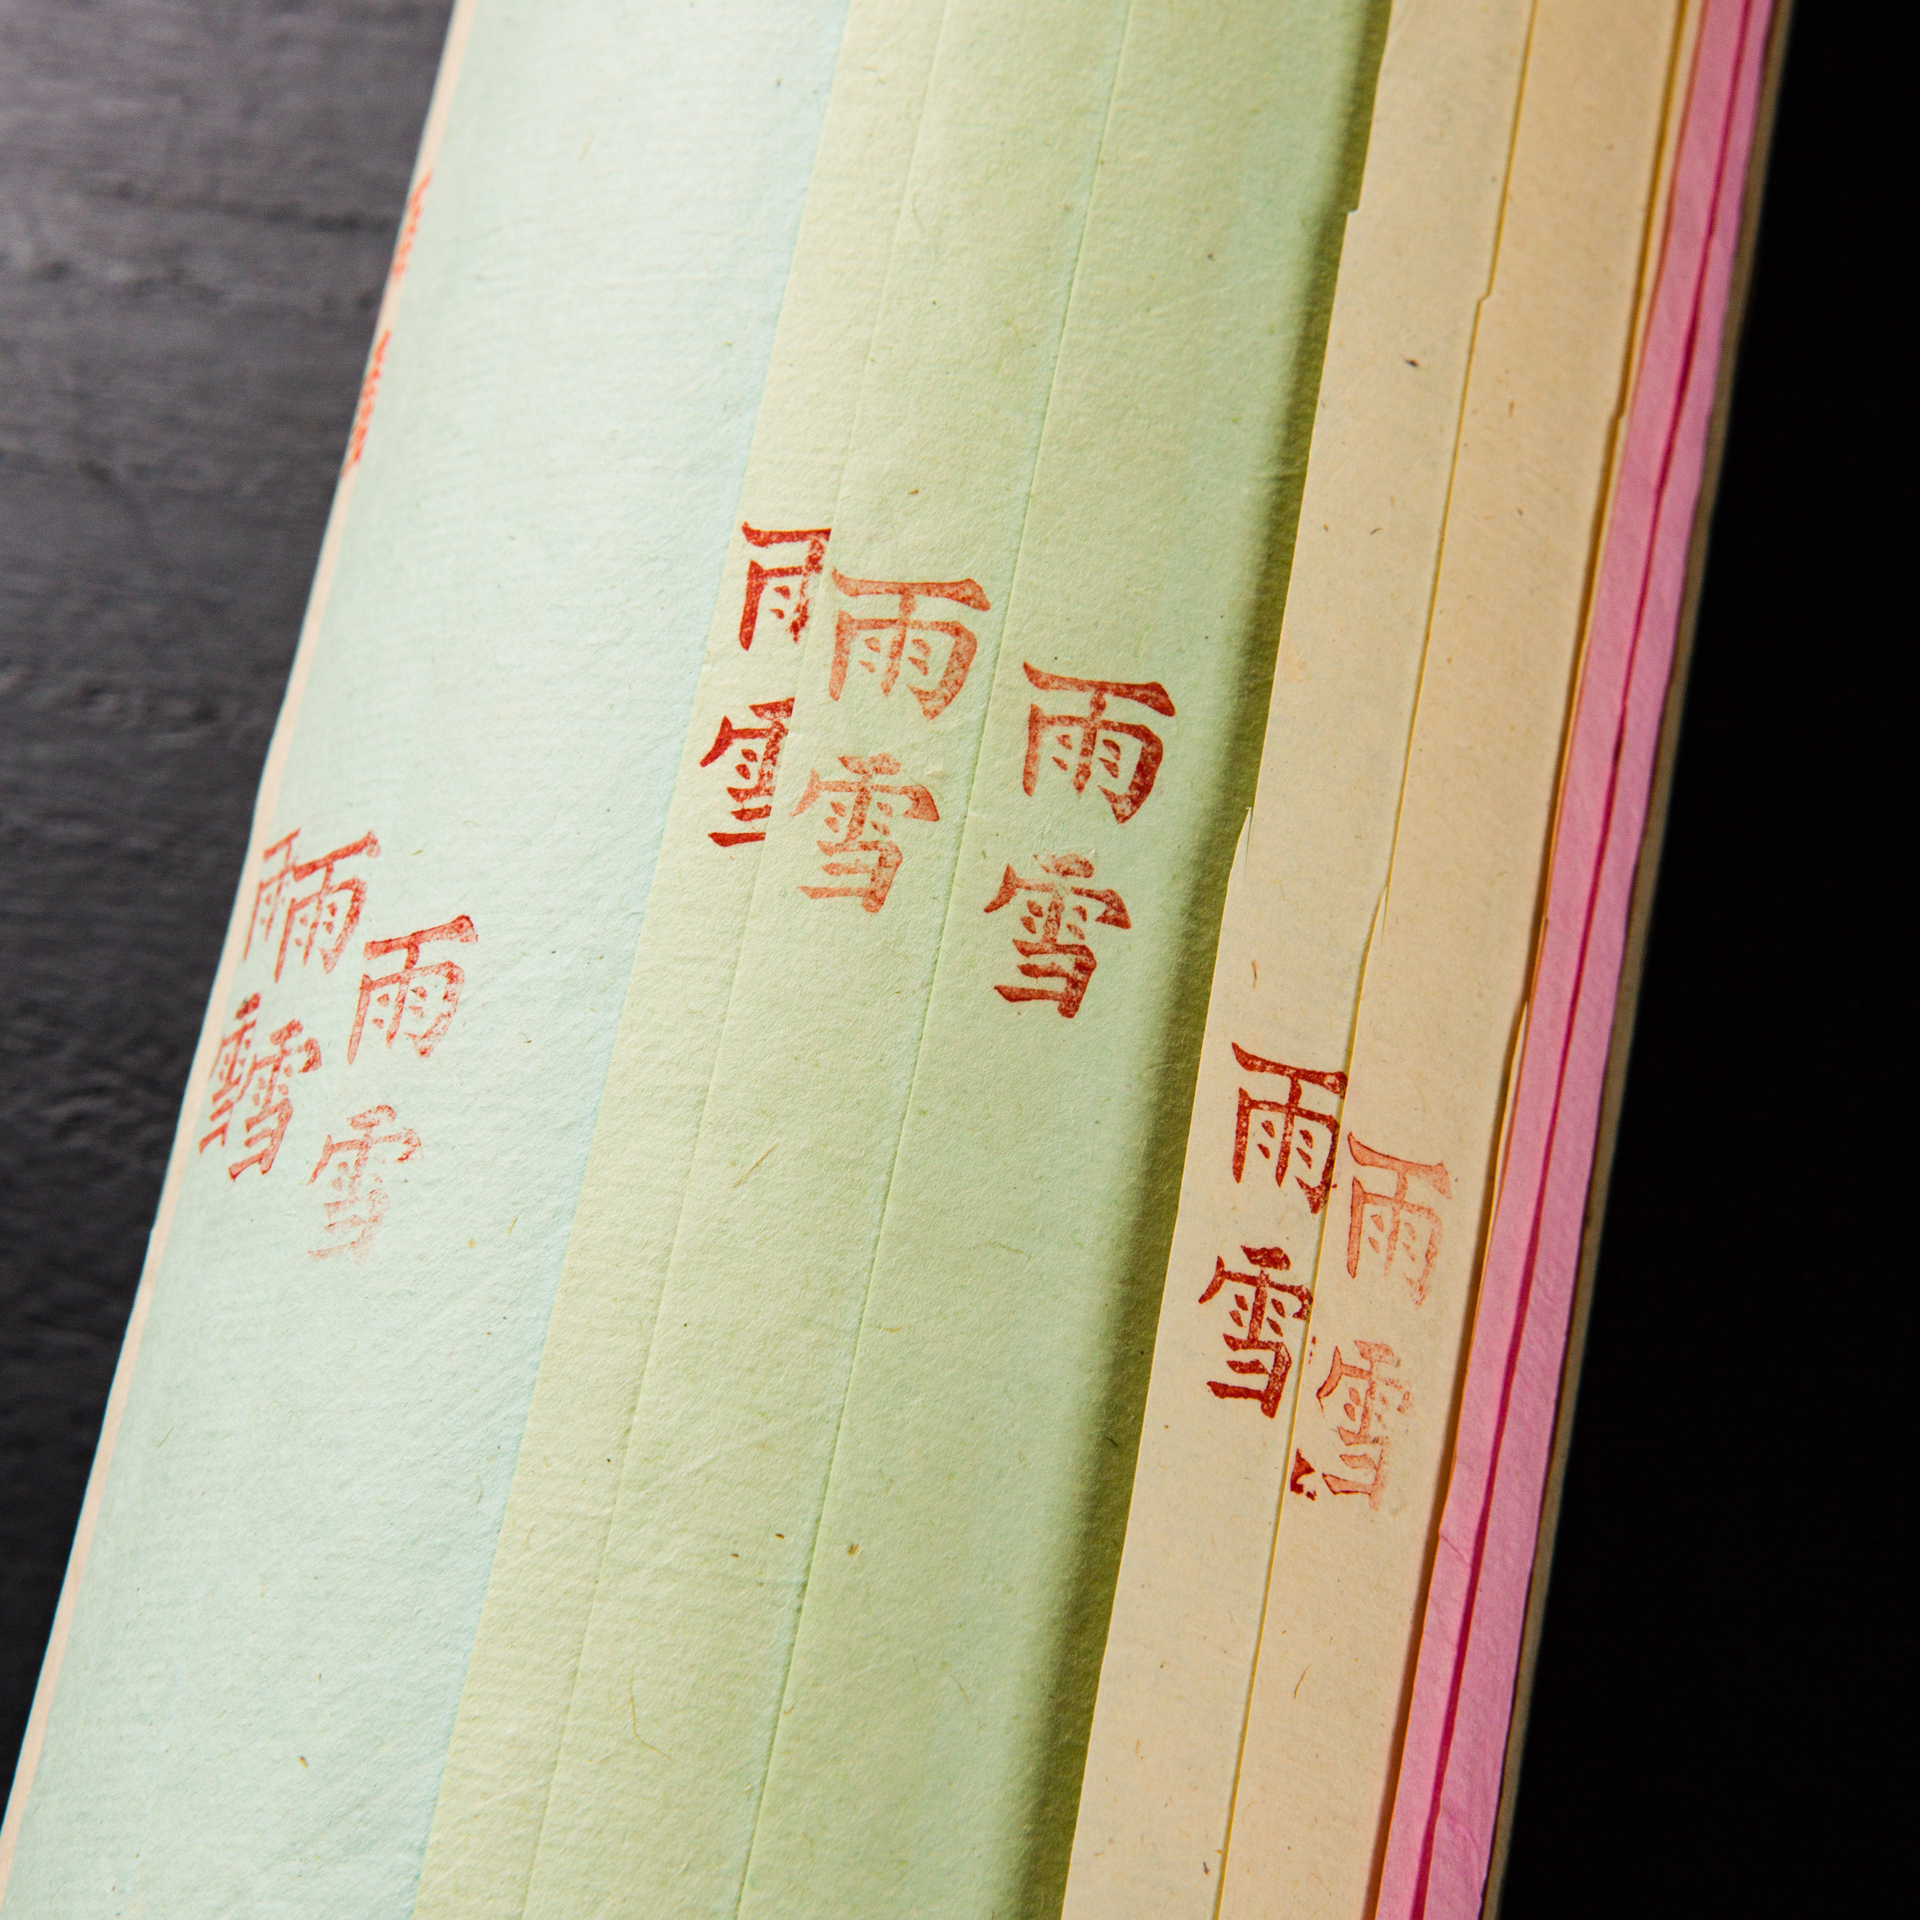 雨雪
雨雪
雨雪
雨雪
雨雪
雨雪
雨雪
雨雪